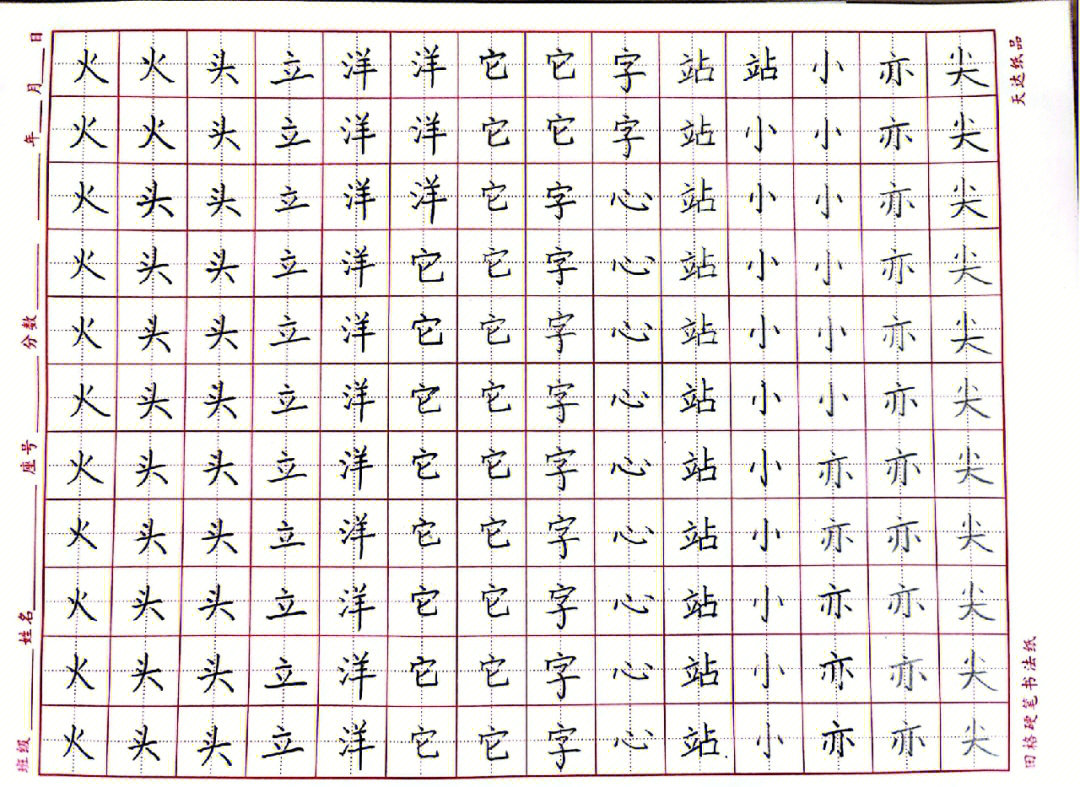 班级____姓名____座号____分数____年__月__日
火火头立洋洋它它字站站小亦尖
火火头立洋洋它它字站小小亦尖
火头头立洋洋它字心站小小亦尖
火头头立洋它它字心站小小亦尖
火头头立洋它它字心站小小亦尖
火头头立洋它它字心站小小亦尖
火头头立洋它它字心站小亦亦尖
火头头立洋它它字心站小亦亦尖
火头头立洋它它字心站小亦亦尖
火头头立洋它它字心站小亦亦尖
火头头立洋它它字心站小亦亦尖
田格硬笔书法纸
天达纸品